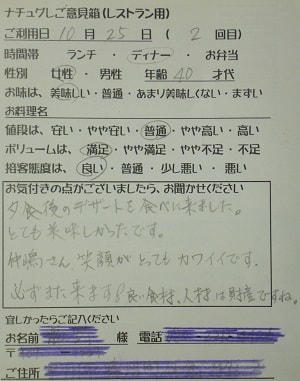 ナチュグしご意見箱(レストラン用)
ご利用日 10月25日 ( 2 回目)
時間帯 ランチ・ディナー・お弁当
性別 女性・男性 年齢 40 才代
お味は、美味しい・普通・あまり美味しくない・まずい
お料理名
値段は、安い・やや安い・普通・やや高い・高い
ボリュームは、満足・やや満足・やや不足・不足
接客態度は、良い・普通・少し悪い・悪い
お気付きの点がございましたら、お聞かせください
夕食後のデザートを食べに来ました。
とても美味しかったです。
仲嶋さん、笑顔がとってもカワイイです。
必ずまた来ます!良い食材、人材は財産ですね。
宜しかったらご記入ください
お名前 様 電話
〒
ご住所